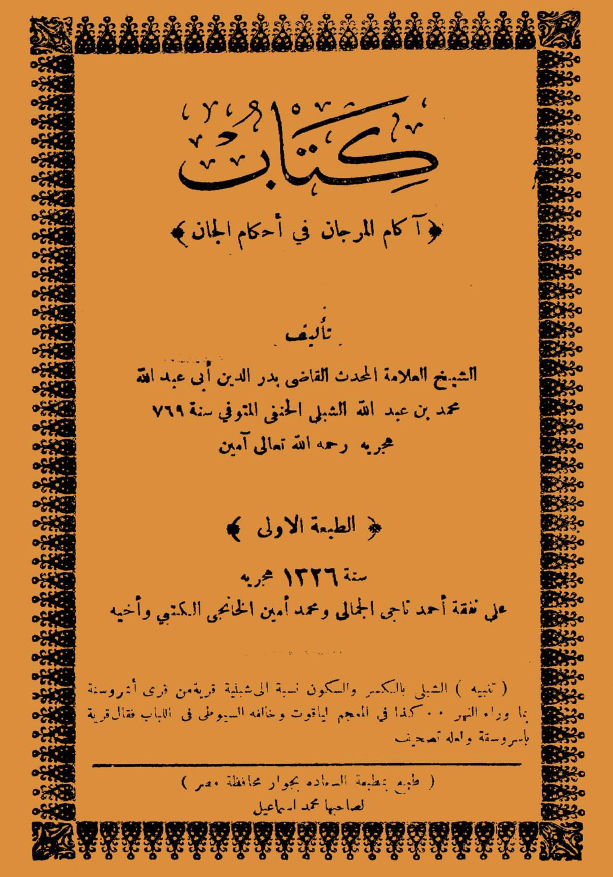 كتاب
﴿ آكام المرجان في أحكام الجان ﴾
تأليف
الشيخ العلامة المحدث القاضى بدر الدين أبى عبد الله
محمد بن عبد الله الشبلى الحنفى المتوفي سنة ٧٦٩
هجريه رحمه الله تعالى آمين
﴿ الطبعة الاولى ﴾
سنة ١٣٢٦ هجريه
على نفقة أحمد ناجى الجمالى ومحمد أمين الخانجى الكتبي وأخيه
( تنبيه ) الشبلى بالكسر والسكون نسبة الى شبلية قرية من قرى أشروسنة
بما وراء النهر ٠٠ كذا في المعجم لياقوت وخالفه السيوطى فى اللباب فقال قرية
باسروسنة ولعله تصحيف
( طبع بمطبعة السعاده بجوار محافظة مصر )
لصاحبها محمد اسماعيل